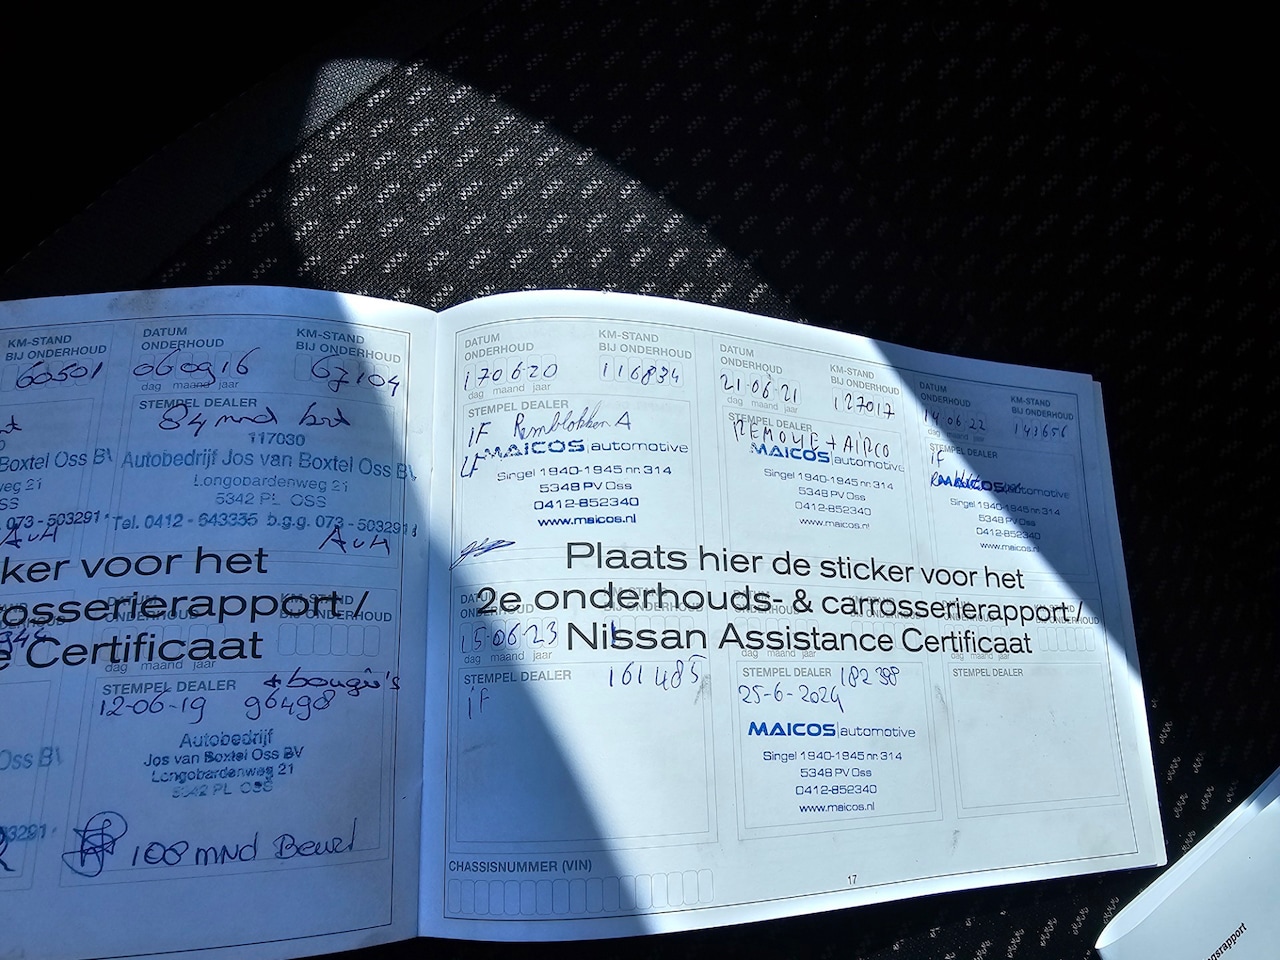 KM-STAND
BIJ ONDERHOUD
60501
Oss BV
073 - 503291
AvH
DATUM
ONDERHOUD
KM-STAND
BIJ ONDERHOUD
060916
67104
dag maand jaar
STEMPEL DEALER
84 mnd brt
117030
Autobedrijf Jos van Boxtel Oss BV
Longobardenweg 21
5342 PL OSS
Tel. 0412 - 643335 b.g.g. 073 - 503291
AvH
ker voor het
osserierapport /
e Certificaat
KM-STAND
BIJ ONDERHOUD
dag maand jaar
STEMPEL DEALER
+ bougie's
12-06-19 96498
Autobedrijf
Jos van Boxtel Oss BV
Longobardenweg 21
5342 PL OSS
108 mnd Beurt
Oss BV
03291
DATUM
ONDERHOUD
KM-STAND
BIJ ONDERHOUD
170620
116834
dag maand jaar
STEMPEL DEALER
IF Remblokken A
LF
MAICOS automotive
Singel 1940-1945 nr. 314
5348 PV Oss
0412-852340
www.maicos.nl
DATUM
ONDERHOUD
KM-STAND
BIJ ONDERHOUD
21 06 21
127017
dag maand jaar
STEMPEL DEALER
+ AIRCO
MAICOS automotive
Singel 1940-1945 nr. 314
5348 PV Oss
0412-852340
www.maicos.nl
DATUM
ONDERHOUD
KM-STAND
BIJ ONDERHOUD
14 06 22
143656
dag maand jaar
STEMPEL DEALER
IF
MAICOS automotive
Singel 1940-1945 nr. 314
5348 PV Oss
0412-852340
www.maicos.nl
Plaats hier de sticker voor het
2e onderhouds- & carrosserierapport /
Nissan Assistance Certificaat
DATUM
ONDERHOUD
15-06-23
dag maand jaar
STEMPEL DEALER
161485
IF
dag maand jaar
STEMPEL DEALER
182398
25-6-2024
MAICOS automotive
Singel 1940-1945 nr. 314
5348 PV Oss
0412-852340
www.maicos.nl
dag maand jaar
STEMPEL DEALER
CHASSISNUMMER (VIN)
17